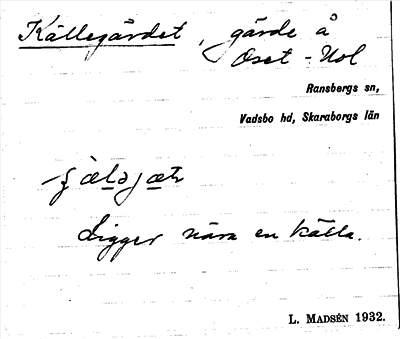 Källegärdet, gärde å
Oset - Uol
Ransbergs sn,
Vadsbo hd, Skaraborgs län
Ligger nära en källa.
L. MADSÉN 1932.